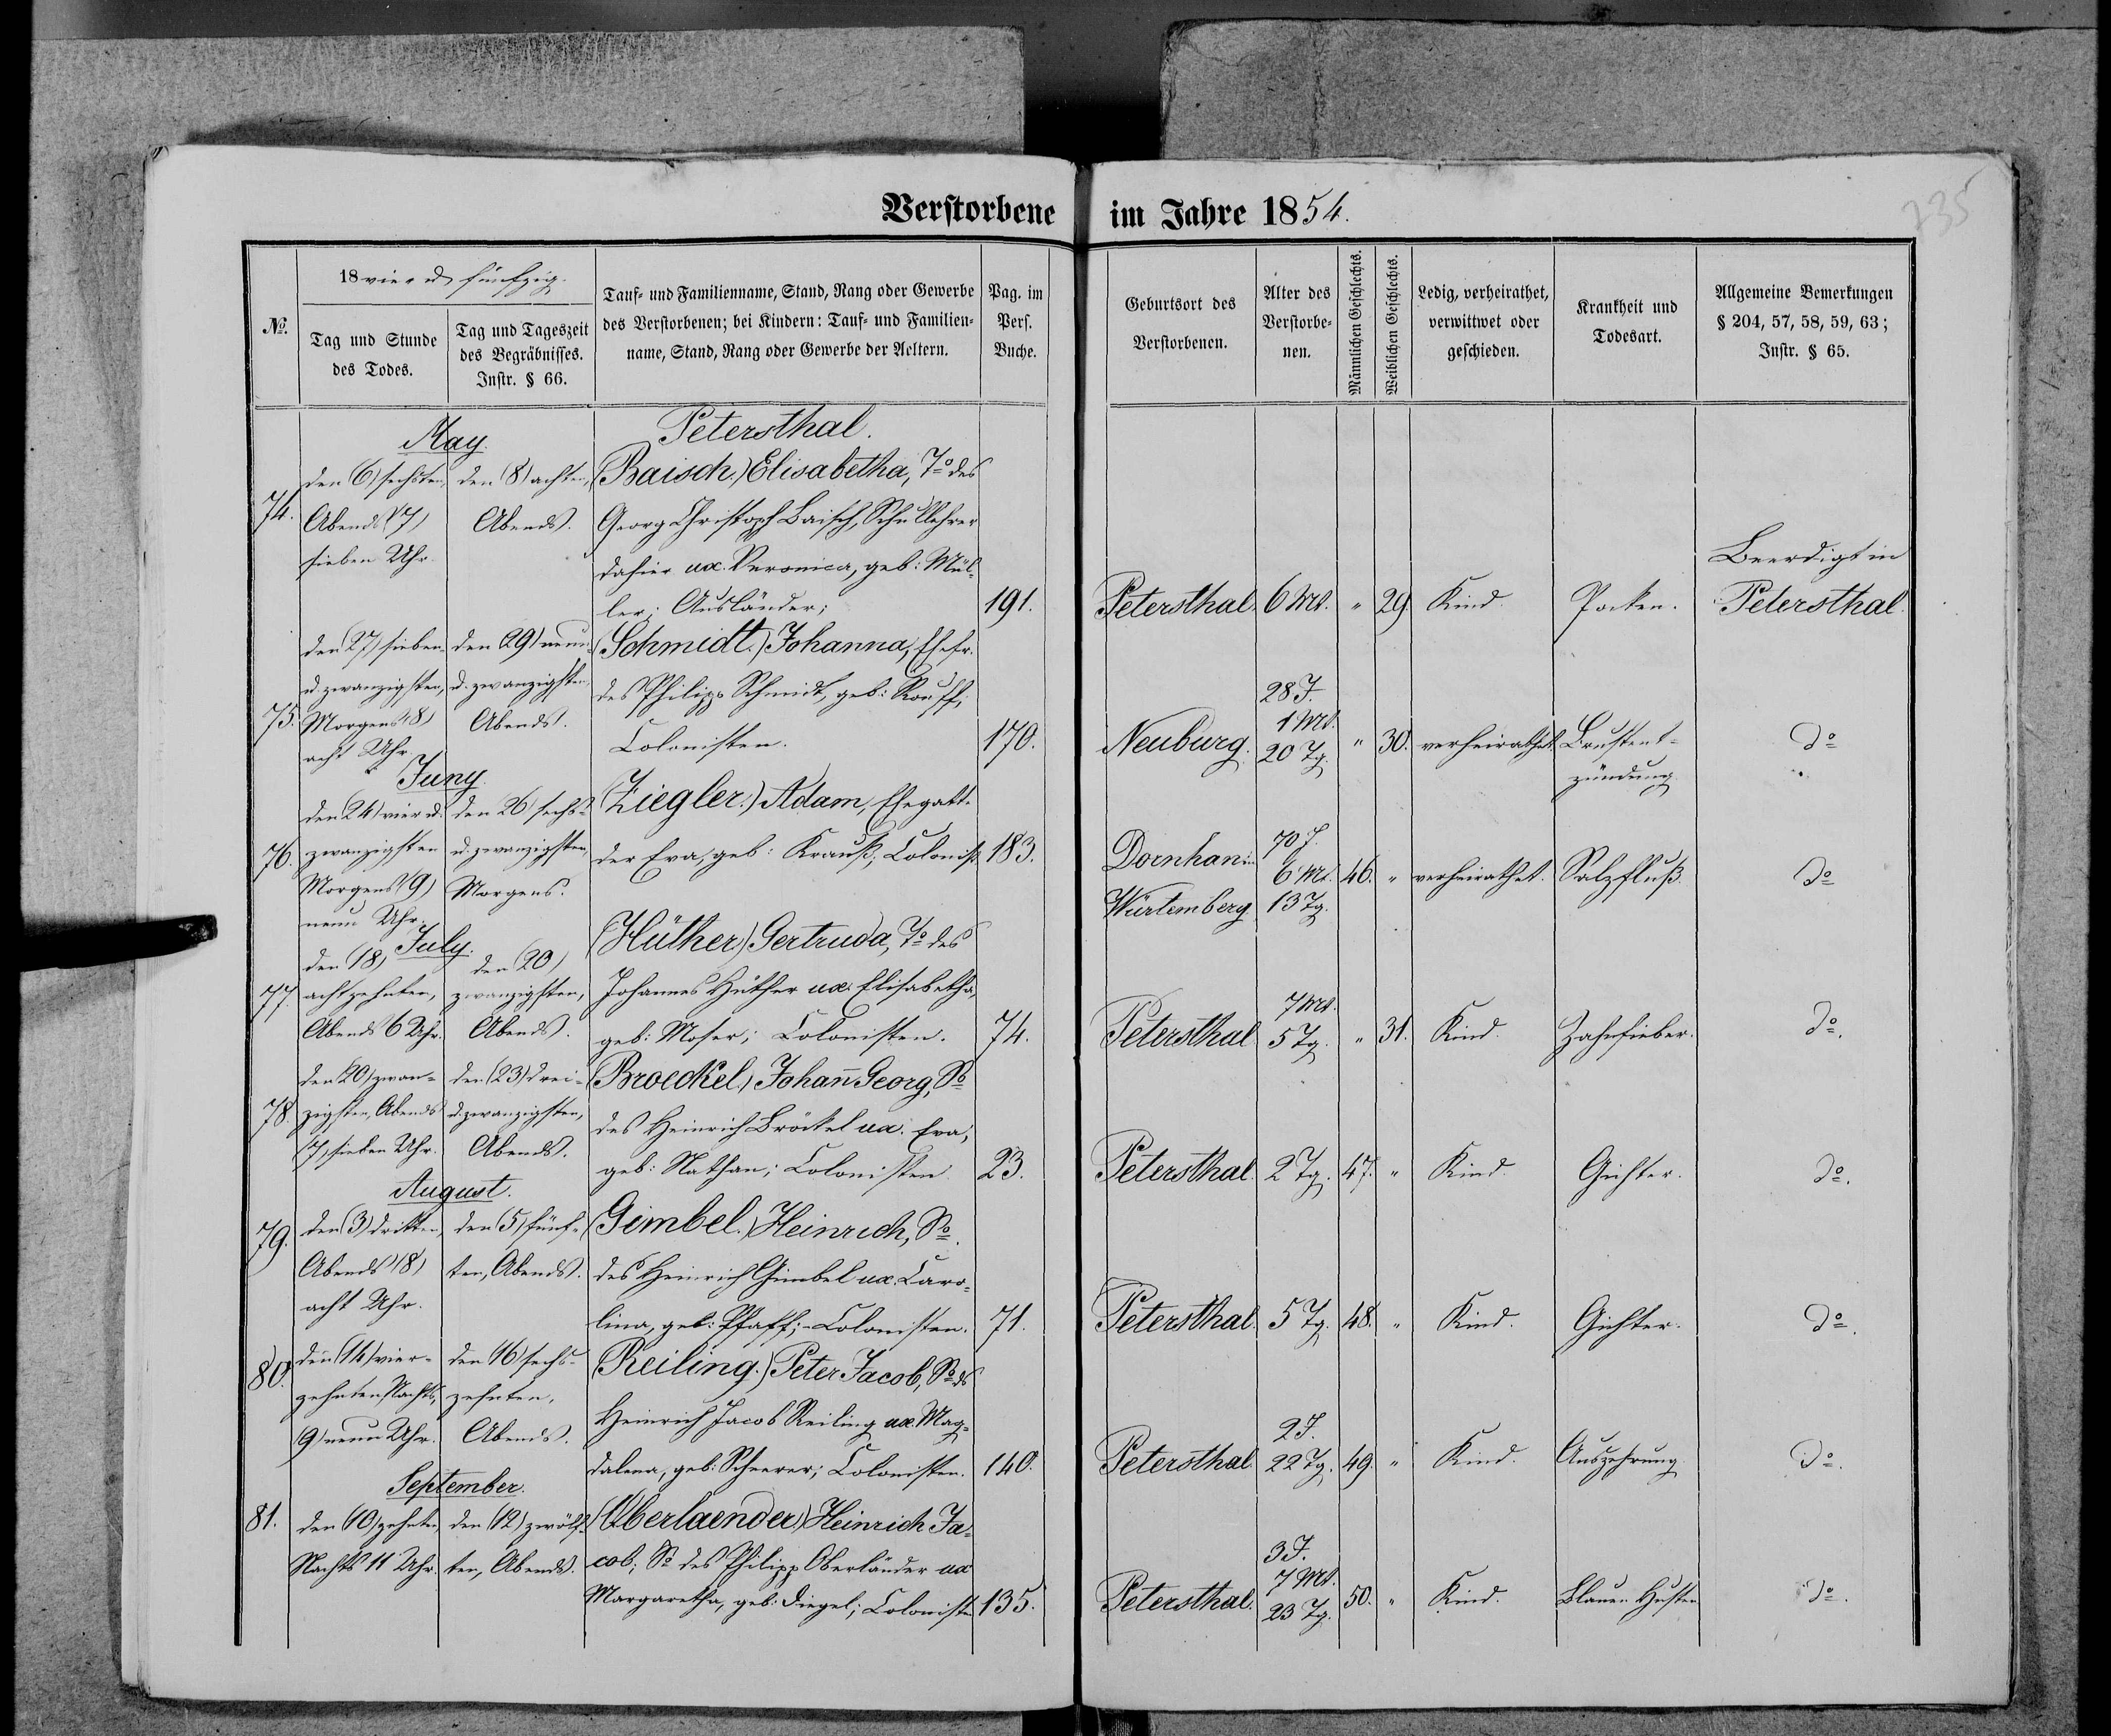 Verstorbene im Jahre 1854.
735
No.
18 vier u fünfzig.
Tag und Stunde
des Todes.
Tag und Tageszeit
des Begräbnisses.
Instr. § 66.
Tauf- und Familienname, Stand, Rang oder Gewerbe
des Verstorbenen; bei Kindern: Tauf- und Familien-
name, Stand, Rang oder Gewerbe der Aeltern.
Pag. im
Pers.
Buche.
Geburtsort des
Verstorbenen.
Alter des
Verstorbe-
nen.
Männlichen Geschlechts.
Weiblichen Geschlechts.
Ledig, verheirathet,
verwittwet oder
geschieden.
Krankheit und
Todesart.
Allgemeine Bemerkungen
§ 204, 57, 58, 59, 63;
Instr. § 65.
Petersthal.
May.
74.
den (6) sechsten,
Abends (7)
sieben Uhr.
den (8) achten,
Abends.
(Baisch.) Elisabetha, To des
Georg Christoph Baisch, Schullehrer
dahier ux. Veronica, geb: Mül-
ler; Ausländer;
191.
Petersthal.
6 Mt.
"
29.
Kind.
Pocken.
Beerdigt in
Petersthal.
75.
den (27) sieben
u. zwanzigsten,
Morgens (8)
acht Uhr.
den (29) neun-
u. zwanzigsten,
Abends.
(Schmidt.) Johanna, Ehefr.
des Philipp Schmidt, geb: Rouff;
Colonisten.
170.
Neuburg.
28 J.
1 Mt.
20 Tg.
"
30.
verheirathet.
Brustent-
zündung.
do
Juny.
76.
den (24) vier u.
zwanzigsten
Morgens (9)
neun Uhr.
den (26) sechs-
u. zwanzigsten,
Morgens.
(Ziegler.) Adam, Ehegatt.
der Eva, geb: Krauß; Colonist.
183.
Dornhan in
Würtemberg.
70 J.
6 Mt.
13 Tg.
46.
"
verheirathet.
Salzfluß.
do
July.
77.
den (18)
achtzehnten,
Abends 6 Uhr.
den (20)
zwanzigsten,
Abends.
(Hüther) Gertruda, To des
Johannes Hüther ux. Elisabetha,
geb: Moser; Colonisten.
74.
Petersthal
7 Mt.
5 Tg.
"
31.
Kind.
Zahnfieber.
do.
78.
den (20) zwan-
zigsten, Abends
(7) sieben Uhr.
den (23) drei-
u. zwanzigsten,
Abends.
(Broeckel.) Johann Georg, So
des Heinrich Bröckel ux. Eva,
geb: Nathan; Colonisten.
23.
Petersthal.
2 Tg.
47.
"
Kind.
Gichter.
do.
August.
79.
den (3) dritten,
Abends (8)
acht Uhr.
den (5) fünf-
ten, Abends.
(Gimbel.) Heinrich, So.
des Heinrich Gimbel ux. Caro-
lina, geb: Pfaff; Colonisten.
71.
Petersthal.
5 Tg.
48.
"
Kind.
Gichter.
do.
80.
den (14) vier-
zehnten, Nachts,
(9) neun Uhr.
den (16) sechs-
zehnten,
Abends.
(Reiling.) Peter Jacob, So ds
Heinrich Jacob Reiling ux. Mag-
dalena, geb: Scheerer; Colonisten.
140.
Petersthal
2 J.
22 Tg.
49.
"
Kind.
Auszehrung.
do.
September.
81.
den (10) zehnten
Nachts 11 Uhr.
den (12) zwölf-
ten, Abends.
(Oberlaender) Heinrich Ja-
cob; So des Philipp Oberländer ux
Margaretha, geb: Diegel; Coloniste
135.
Petersthal.
3 J.
7 Mt.
23 Tg.
50.
"
Kind.
Blauen Husten
do.